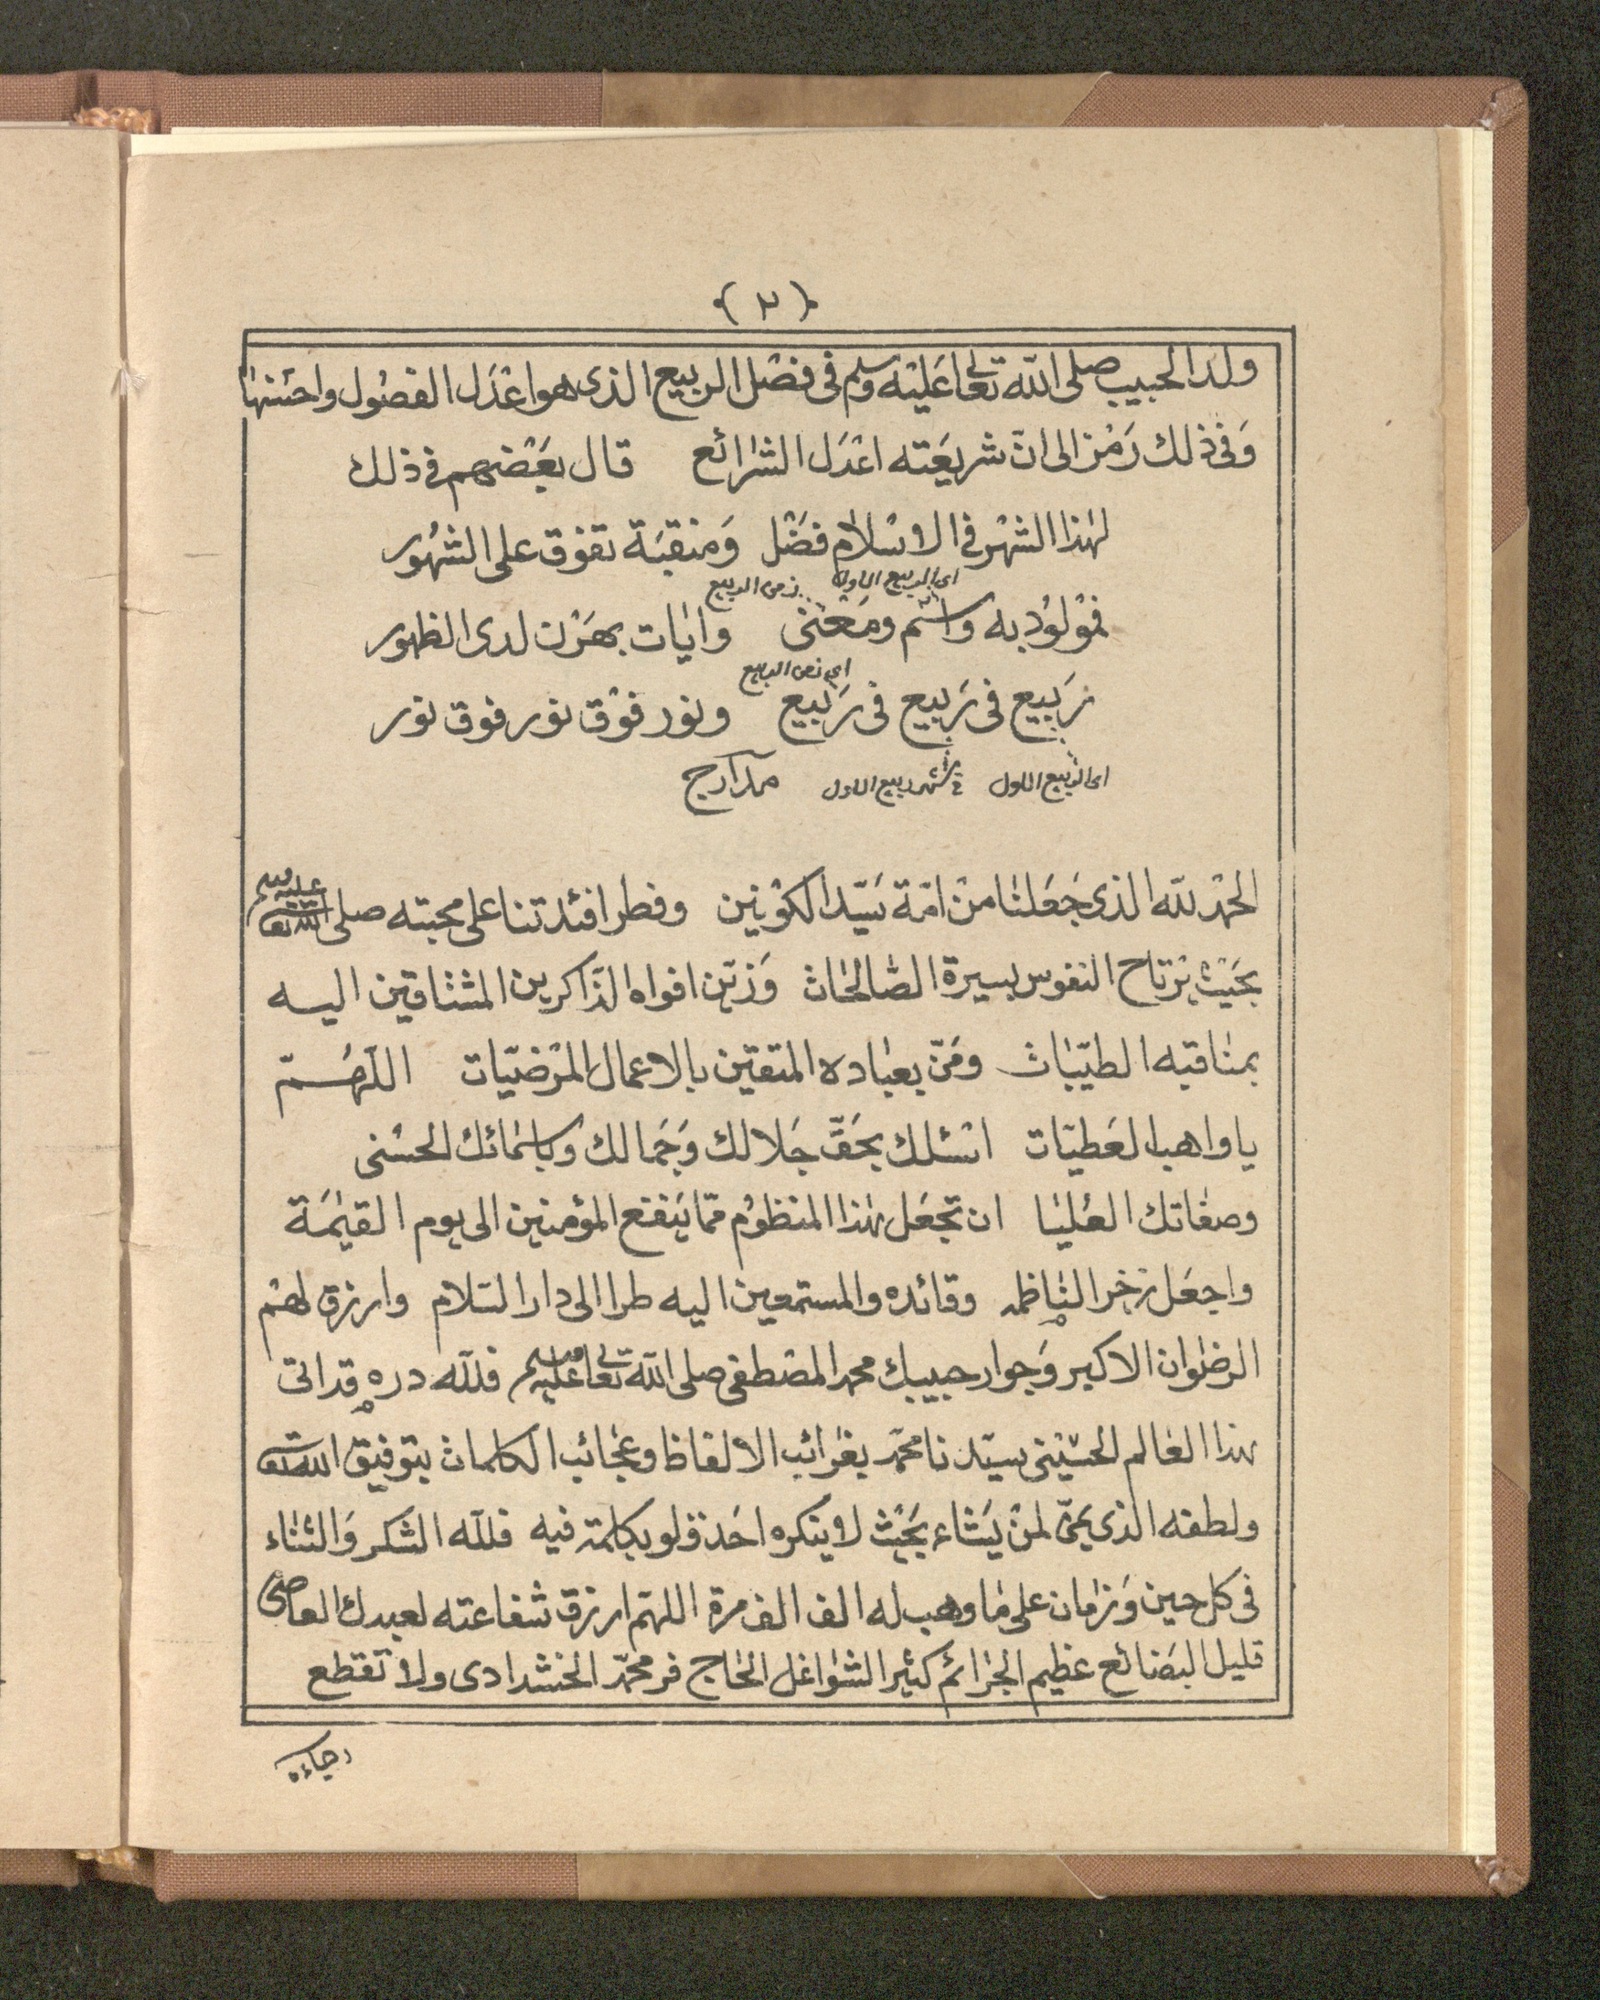 ﴿٢﴾
ولد الحبيب صلى الله تعالى عليه وسلم فى فصل الربيع الذى هو اعدل الفصول واحسنها
وفى ذلك رمز الى ان شريعته اعدل الشرائع قال بعضهم فى ذلك
لهذا الشهر فى الاسلام فضل ومنقبة تفوق على الشهور
اى الربيع الاول زمن الربيع
فمولود به واسم ومعنى وايات بهرن لدى الظهور
اى زمن الربيع
ربيع فى ربيع فى ربيع ونور فوق نور فوق نور
اى الربيع الاول شهر ربيع الاول مدارج
الحمد لله الذى جعلنا من امة سيد الكونين وفطر افئدتنا على محبته صلى الله تعالى عليه وسلم
بحيث يرتاح النفوس بسيرة الصالحات وزين افواه الذاكرين المشتاقين اليه
بمناقبه الطيبات ومن بعباده المتقين بالاعمال المرضيات اللهم
يا واهب العطيات اسئلك بحق جلالك وجمالك وباسمائك الحسنى
وصفاتك العليا ان تجعل هذا المنظوم مما ينفع المؤمنين الى يوم القيمة
واجعل زخرا لناظمه وقائده والمستمعين اليه طرا الى دار السلام وارزق لهم
الرضوان الاكبر وجوار حبيبك محمد المصطفى صلى الله تعالى عليه وسلم فلله دره قد اتى
هذا العالم الحسينى سيدنا محمد بغرائب الالفاظ وعجائب الكلمات بتوفيق الله تعالى
ولطفه الذى يمن لمن يشاء بحيث لا ينكره احد ولو بكلمة فيه فلله الشكر والثناء
فى كل حين وزمان على ما وهب له الف الف مرة اللهم ارزق شفاعته لعبدك العاصى
قليل البضائع عظيم الجرائم كثير الشواغل الحاج فر محمد الخشدادى ولا تقطع
رجاءه